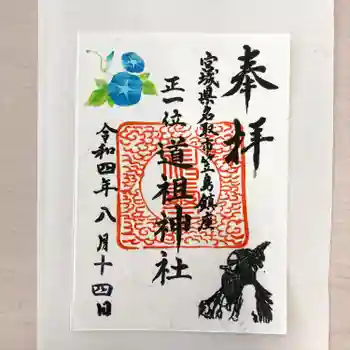 奉拝
宮城県名取市笠島鎮座
正一位
道祖神社
令和四年八月十四日